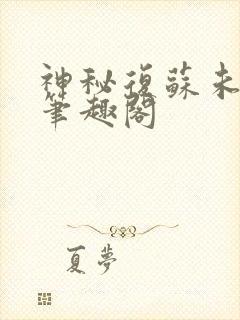 神秘復蘇未
筆趣閣
夏夢